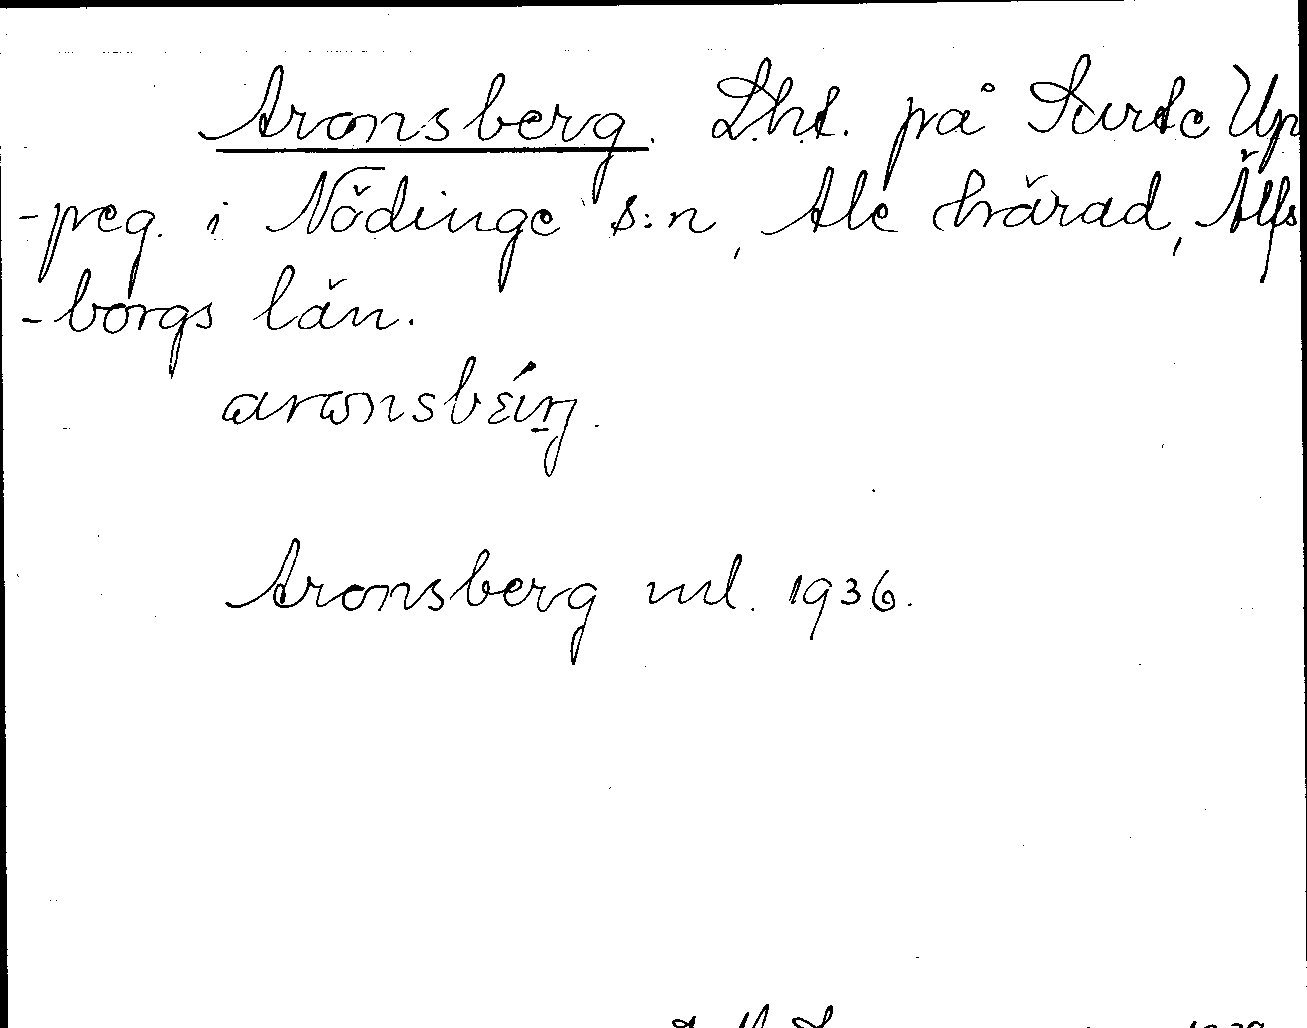 Aronsberg. Lht. på Surte Up
-peg. i Nödinge s:n, Ale härad, Älfs
-borgs län.
Aronsberg ml. 1936.